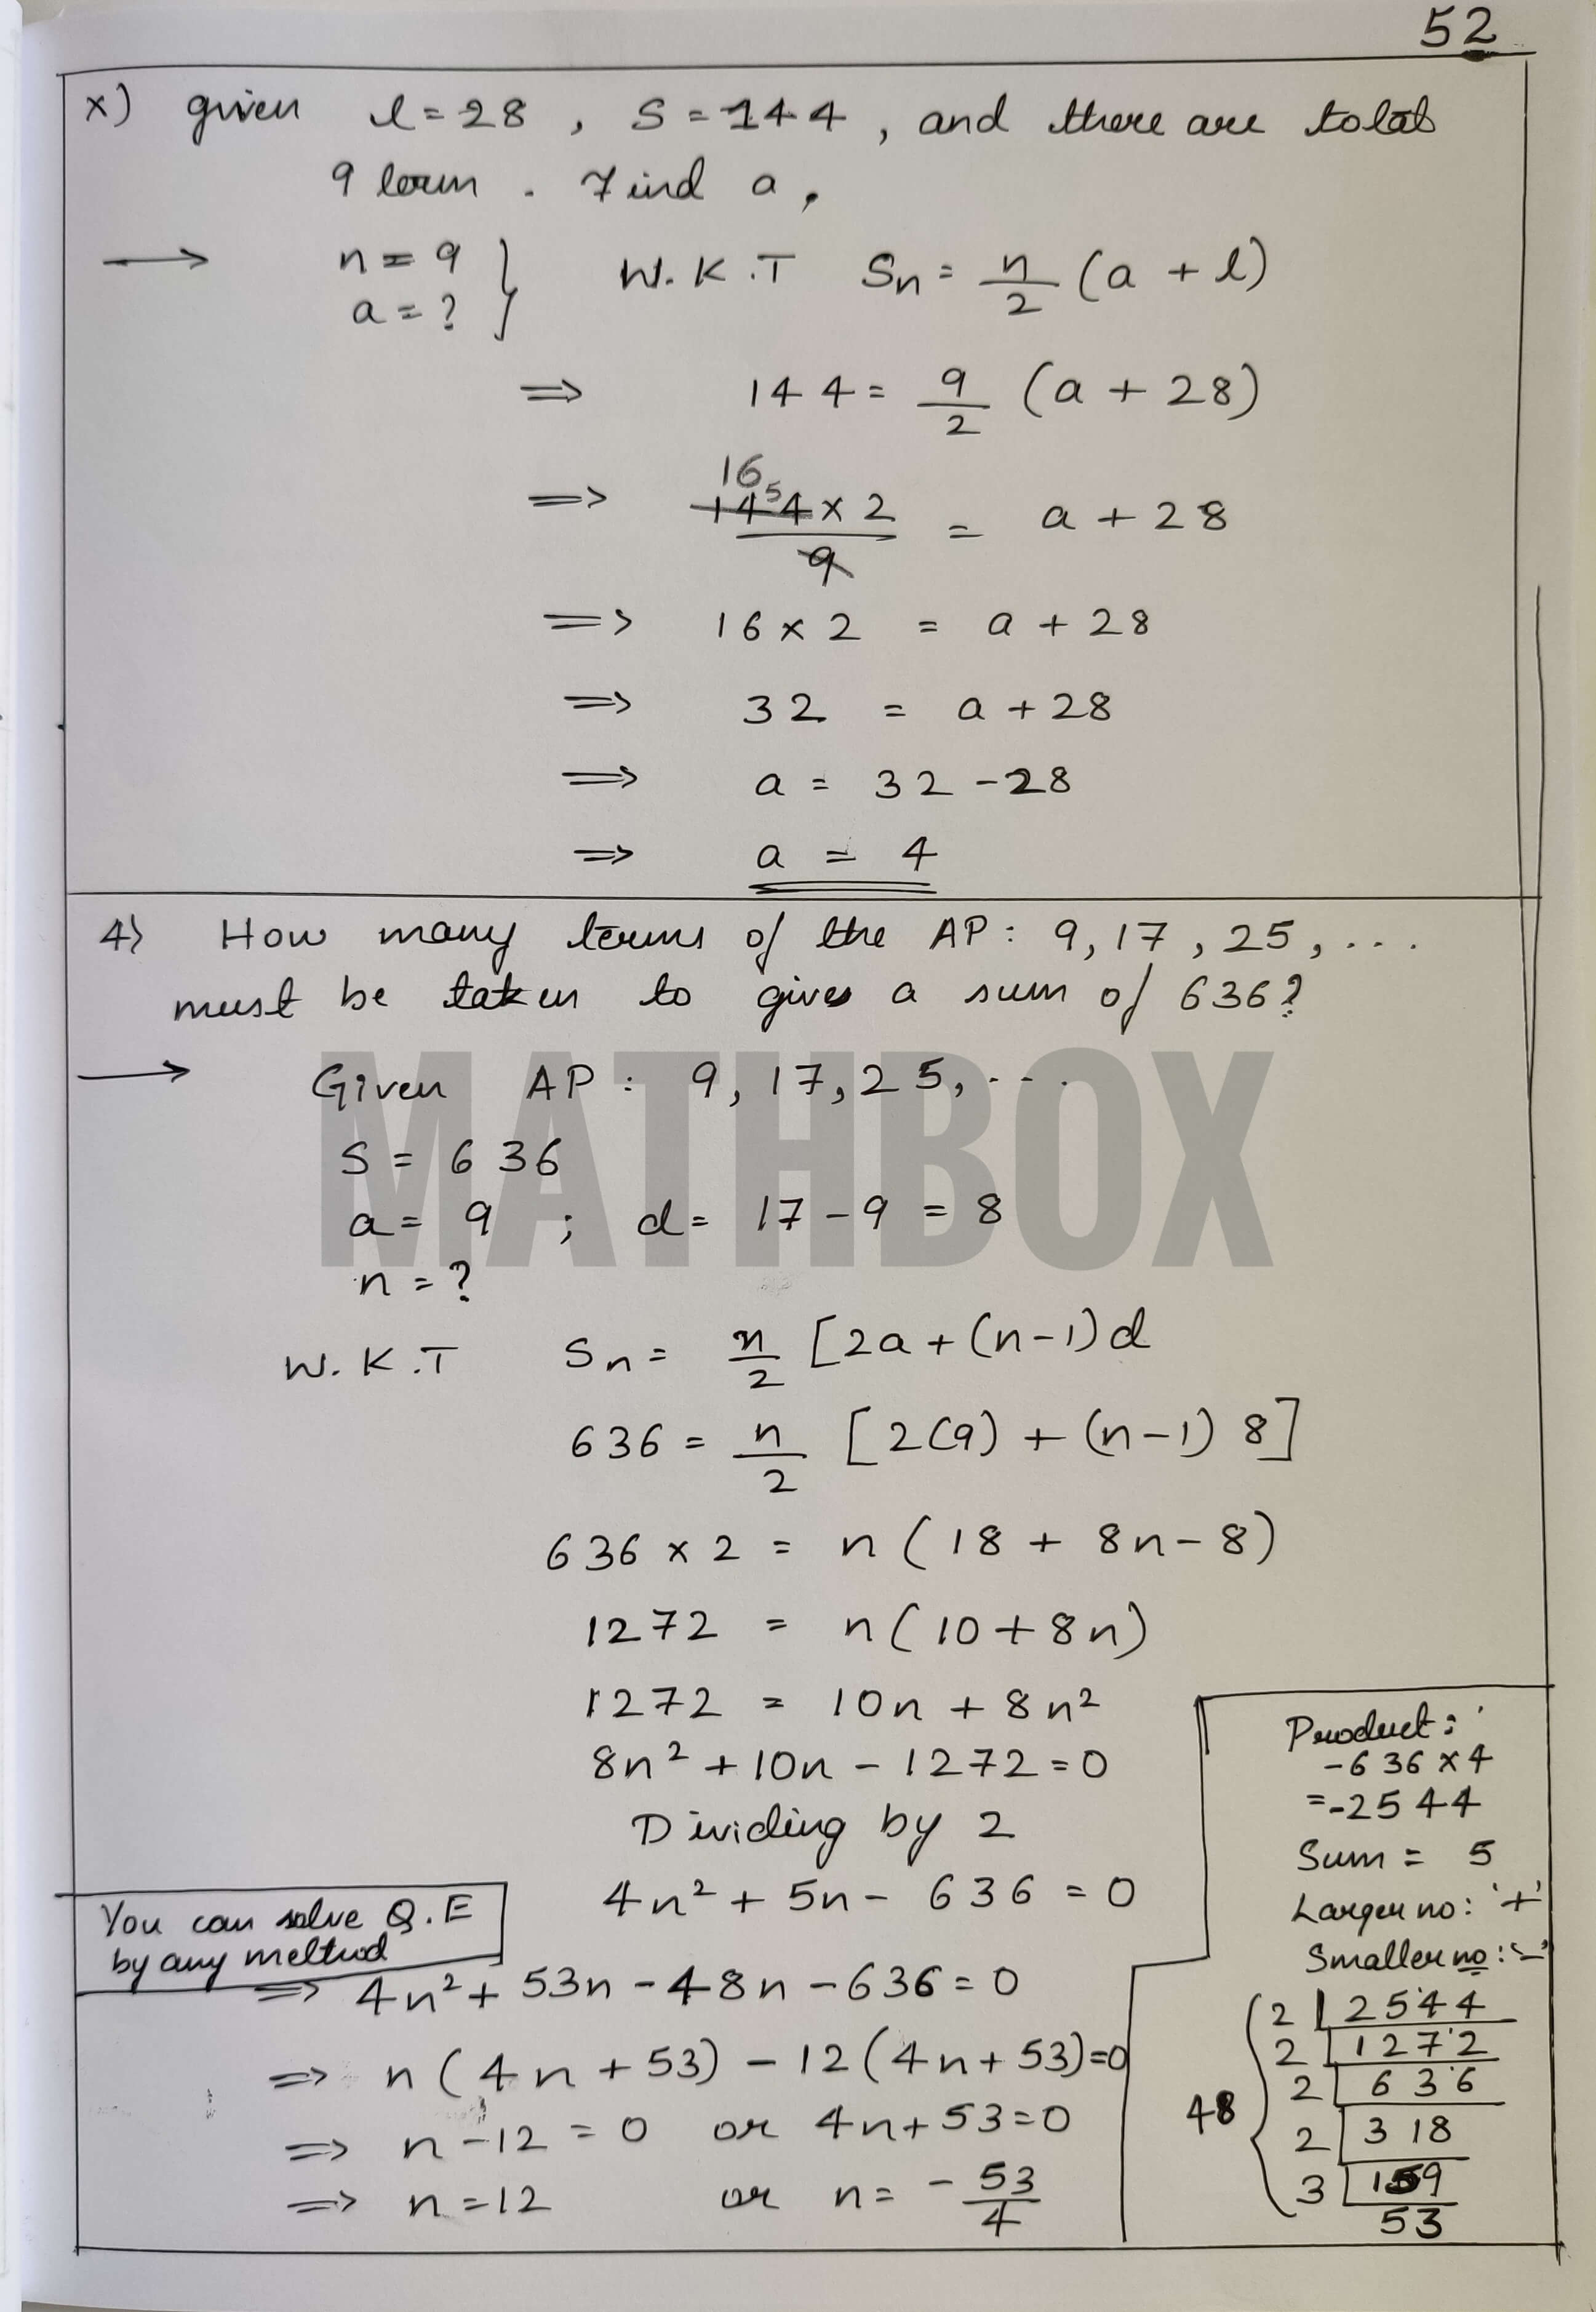 52
x) given l = 28 , S = 144 , and there are total
9 term . Find a ,
→ n = 9 } W.K.T Sn = n/2 (a + l)
a = ?
⇒ 144 = 9/2 (a + 28)
16
⇒ 144 × 2 / 9 = a + 28
⇒ 16 × 2 = a + 28
⇒ 32 = a + 28
⇒ a = 32 - 28
⇒ a = 4
4) How many terms of the AP : 9, 17, 25, ...
must be taken to give a sum of 636?
→ Given AP : 9, 17, 25, ...
MATHBOX
S = 636
a = 9 ; d = 17 - 9 = 8
n = ?
W.K.T Sn = n/2 [2a + (n-1)d
636 = n/2 [2(9) + (n-1) 8]
636 × 2 = n (18 + 8n - 8)
1272 = n(10 + 8n)
1272 = 10n + 8n²
8n² + 10n - 1272 = 0
Dividing by 2
4n² + 5n - 636 = 0
You can solve Q.E
by any method
⇒ 4n² + 53n - 48n - 636 = 0
⇒ n(4n + 53) - 12(4n + 53) = 0
⇒ n - 12 = 0 or 4n + 53 = 0
⇒ n = 12 or n = - 53/4
Product :
-636 × 4
= -2544
Sum = 5
Larger no : '+'
Smaller no : '-'
2 | 2544
2 | 1272
2 | 636
48 { 2 | 318
3 | 159
53